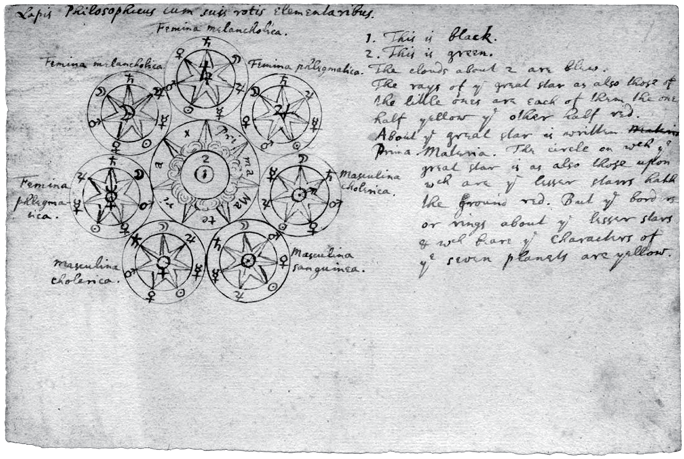 Lapis Philosophicus cum suis rotis elementaribus.
Femina melancholica.
Femina melancholica
Femina phlegmatica.
Femina
phlegma-
tica.
Masculina
cholerica.
masculina
cholerica.
Masculina
sanguinea.
Pri ma Ma te ri a x
2
1
1. This is black.
2. This is green.
The clouds about 2 are blew.
The rays of yͤ great star as also those of
the little ones are each of them the one
half yellow yͤ other half red.
About yͤ great star is written
Prima Materia. The circle on wch yͤ
great star is as also those upon
wch are yͤ lesser starrs hath
the ground red. But yͤ borders
or rings about yͤ lesser stars
& wch beare yͤ characters of
yͤ seven planets are yellow.